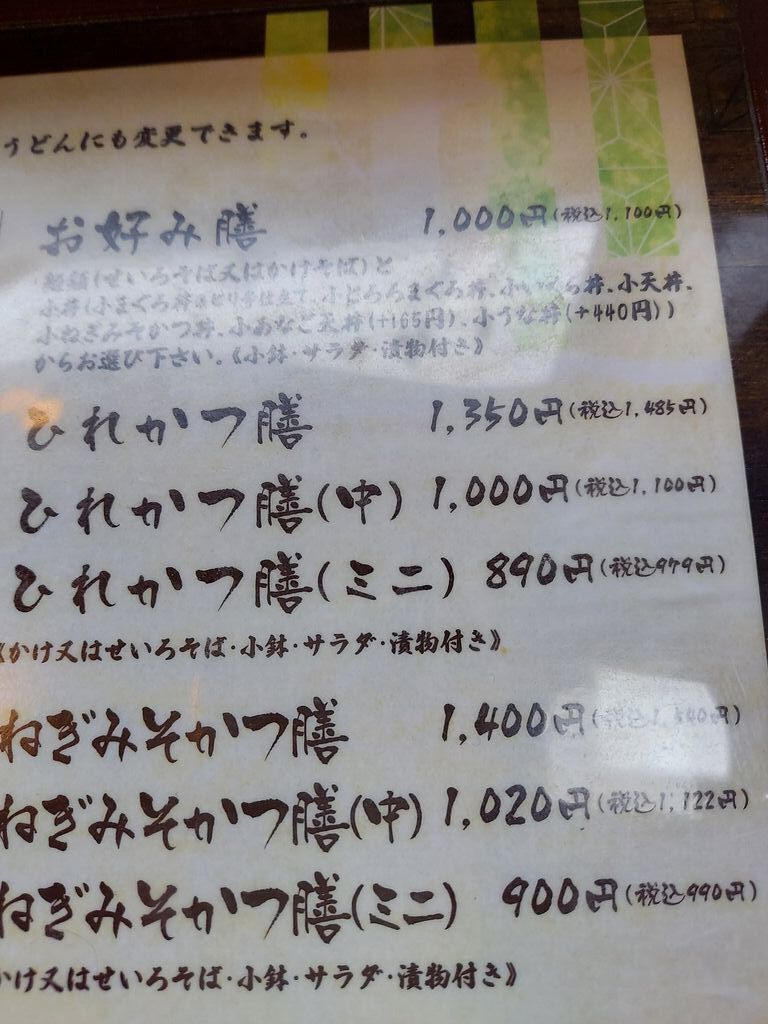 うどんにも変更できます。
お好み膳 1,000円(税込1,100円)
麺類(せいろそば又はかけそば)と
小丼(小まぐろ丼のピリ辛仕立て、小とろろまぐろ丼、小いくら丼、小天丼、
小ねぎみそかつ丼、小あなご天丼(+165円)、小うな丼(+440円))
からお選び下さい。《小鉢・サラダ・漬物付き》
ひれかつ膳 1,350円(税込1,485円)
ひれかつ膳(中) 1,000円(税込1,100円)
ひれかつ膳(ミニ) 890円(税込979円)
《かけ又はせいろそば・小鉢・サラダ・漬物付き》
ねぎみそかつ膳 1,400円(税込1,540円)
ねぎみそかつ膳(中) 1,020円(税込1,122円)
ねぎみそかつ膳(ミニ) 900円(税込990円)
かけ又はせいろそば・小鉢・サラダ・漬物付き》